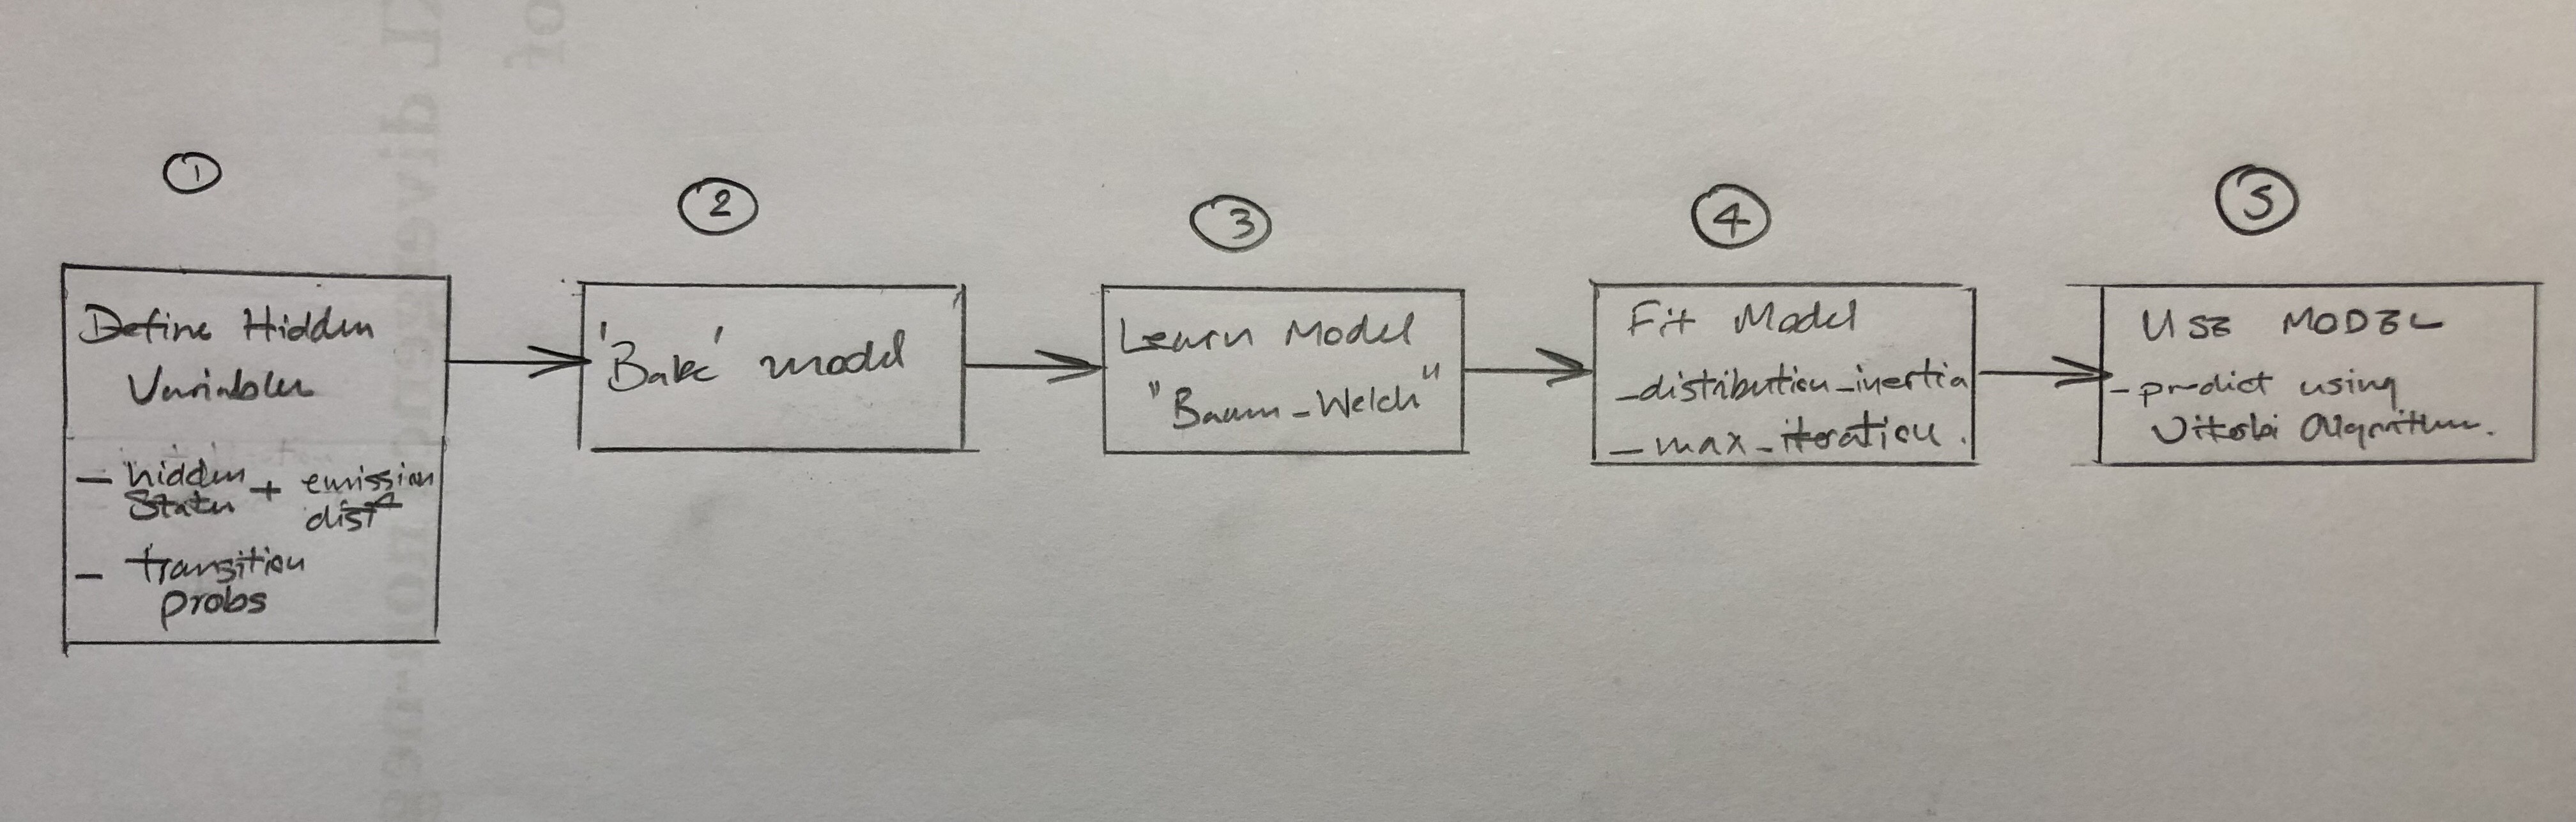 1
Define Hidden
Variables
- hidden + emission
States distⁿ
- transition
probs
2
'Bake' model
3
Learn Model
"Baum-Welch"
4
Fit Model
- distribution_inertia
- max_iteration.
5
USE MODEL
- predict using
Viterbi Algorithm.